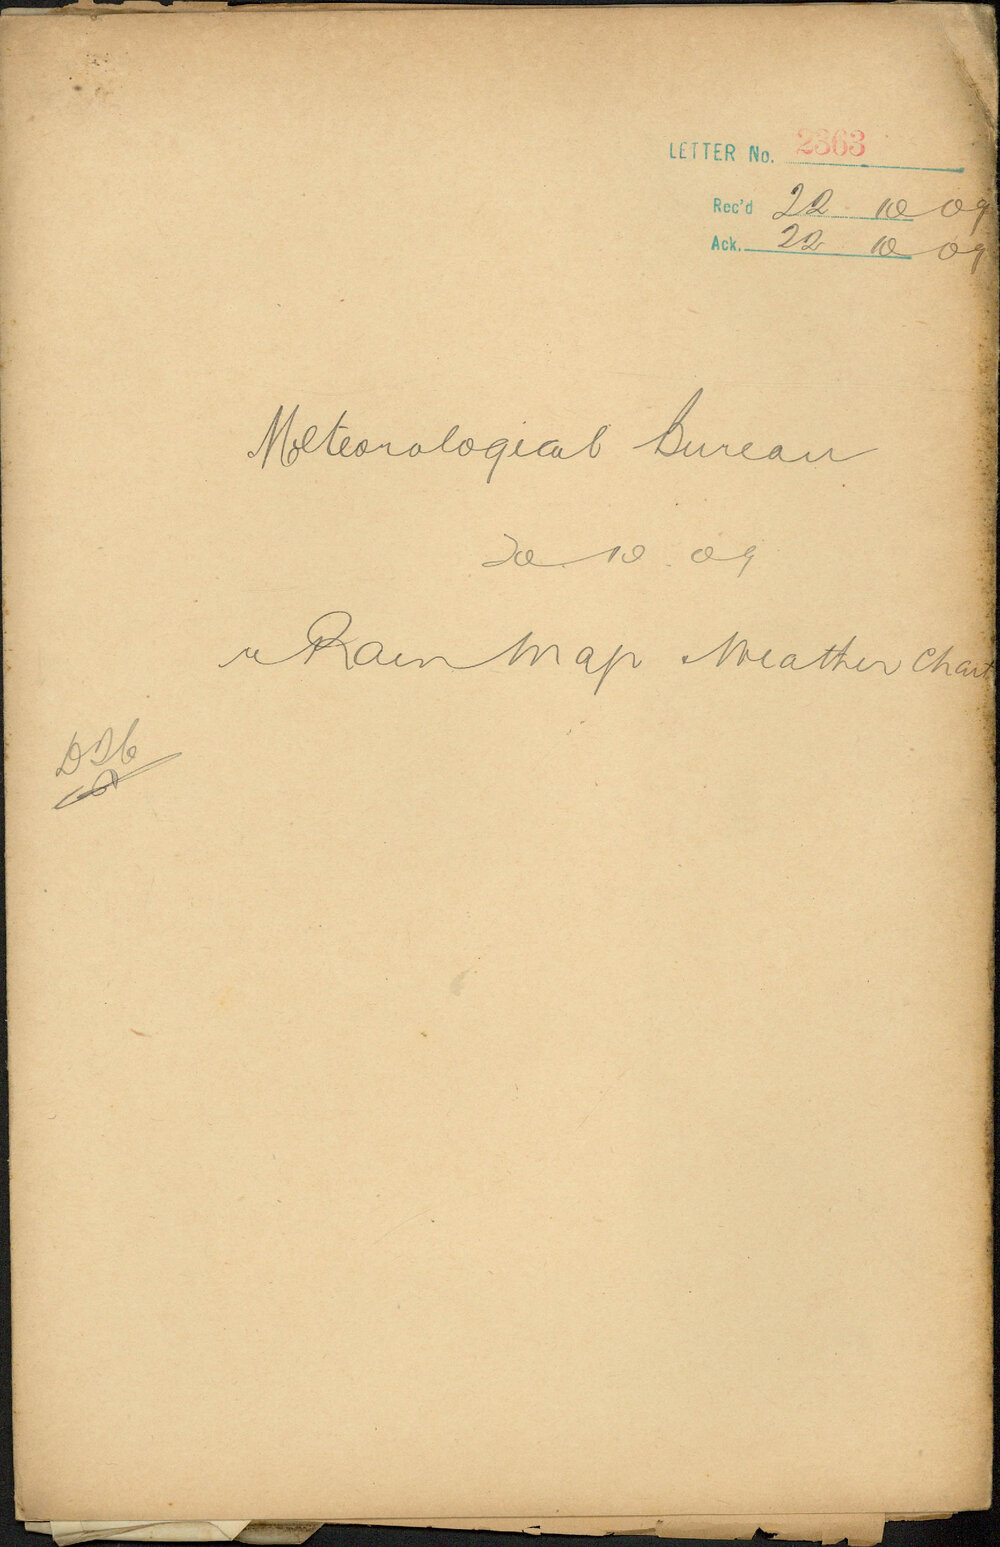 LETTER No. 2363
Rec'd 22 10 09
Ack. 22 10 09
Meteorological Bureau
20. 10. 09
r Rain Map Weather Chart